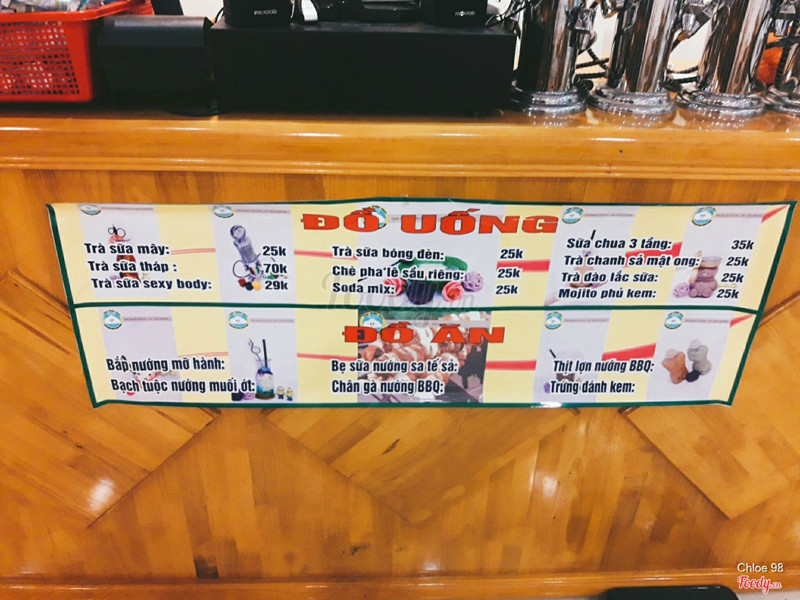 ĐỒ UỐNG
Trà sữa mây: 25k
Trà sữa tháp : 70k
Trà sữa sexy body: 29k
Trà sữa bóng đèn: 25k
Chè pha lê sầu riêng: 25k
Soda mix: 25k
Sữa chua 3 tầng: 35k
Trà chanh sả mật ong: 25k
Trà đào lắc sữa: 25k
Mojito phủ kem: 25k
ĐỒ ĂN
Bắp nướng mỡ hành:
Bạch tuộc nướng muối ớt:
Bẹ sữa nướng sa tế sả:
Chân gà nướng BBQ:
Thịt lợn nướng BBQ:
Trứng đánh kem:
Chloe 98
Foody.vn